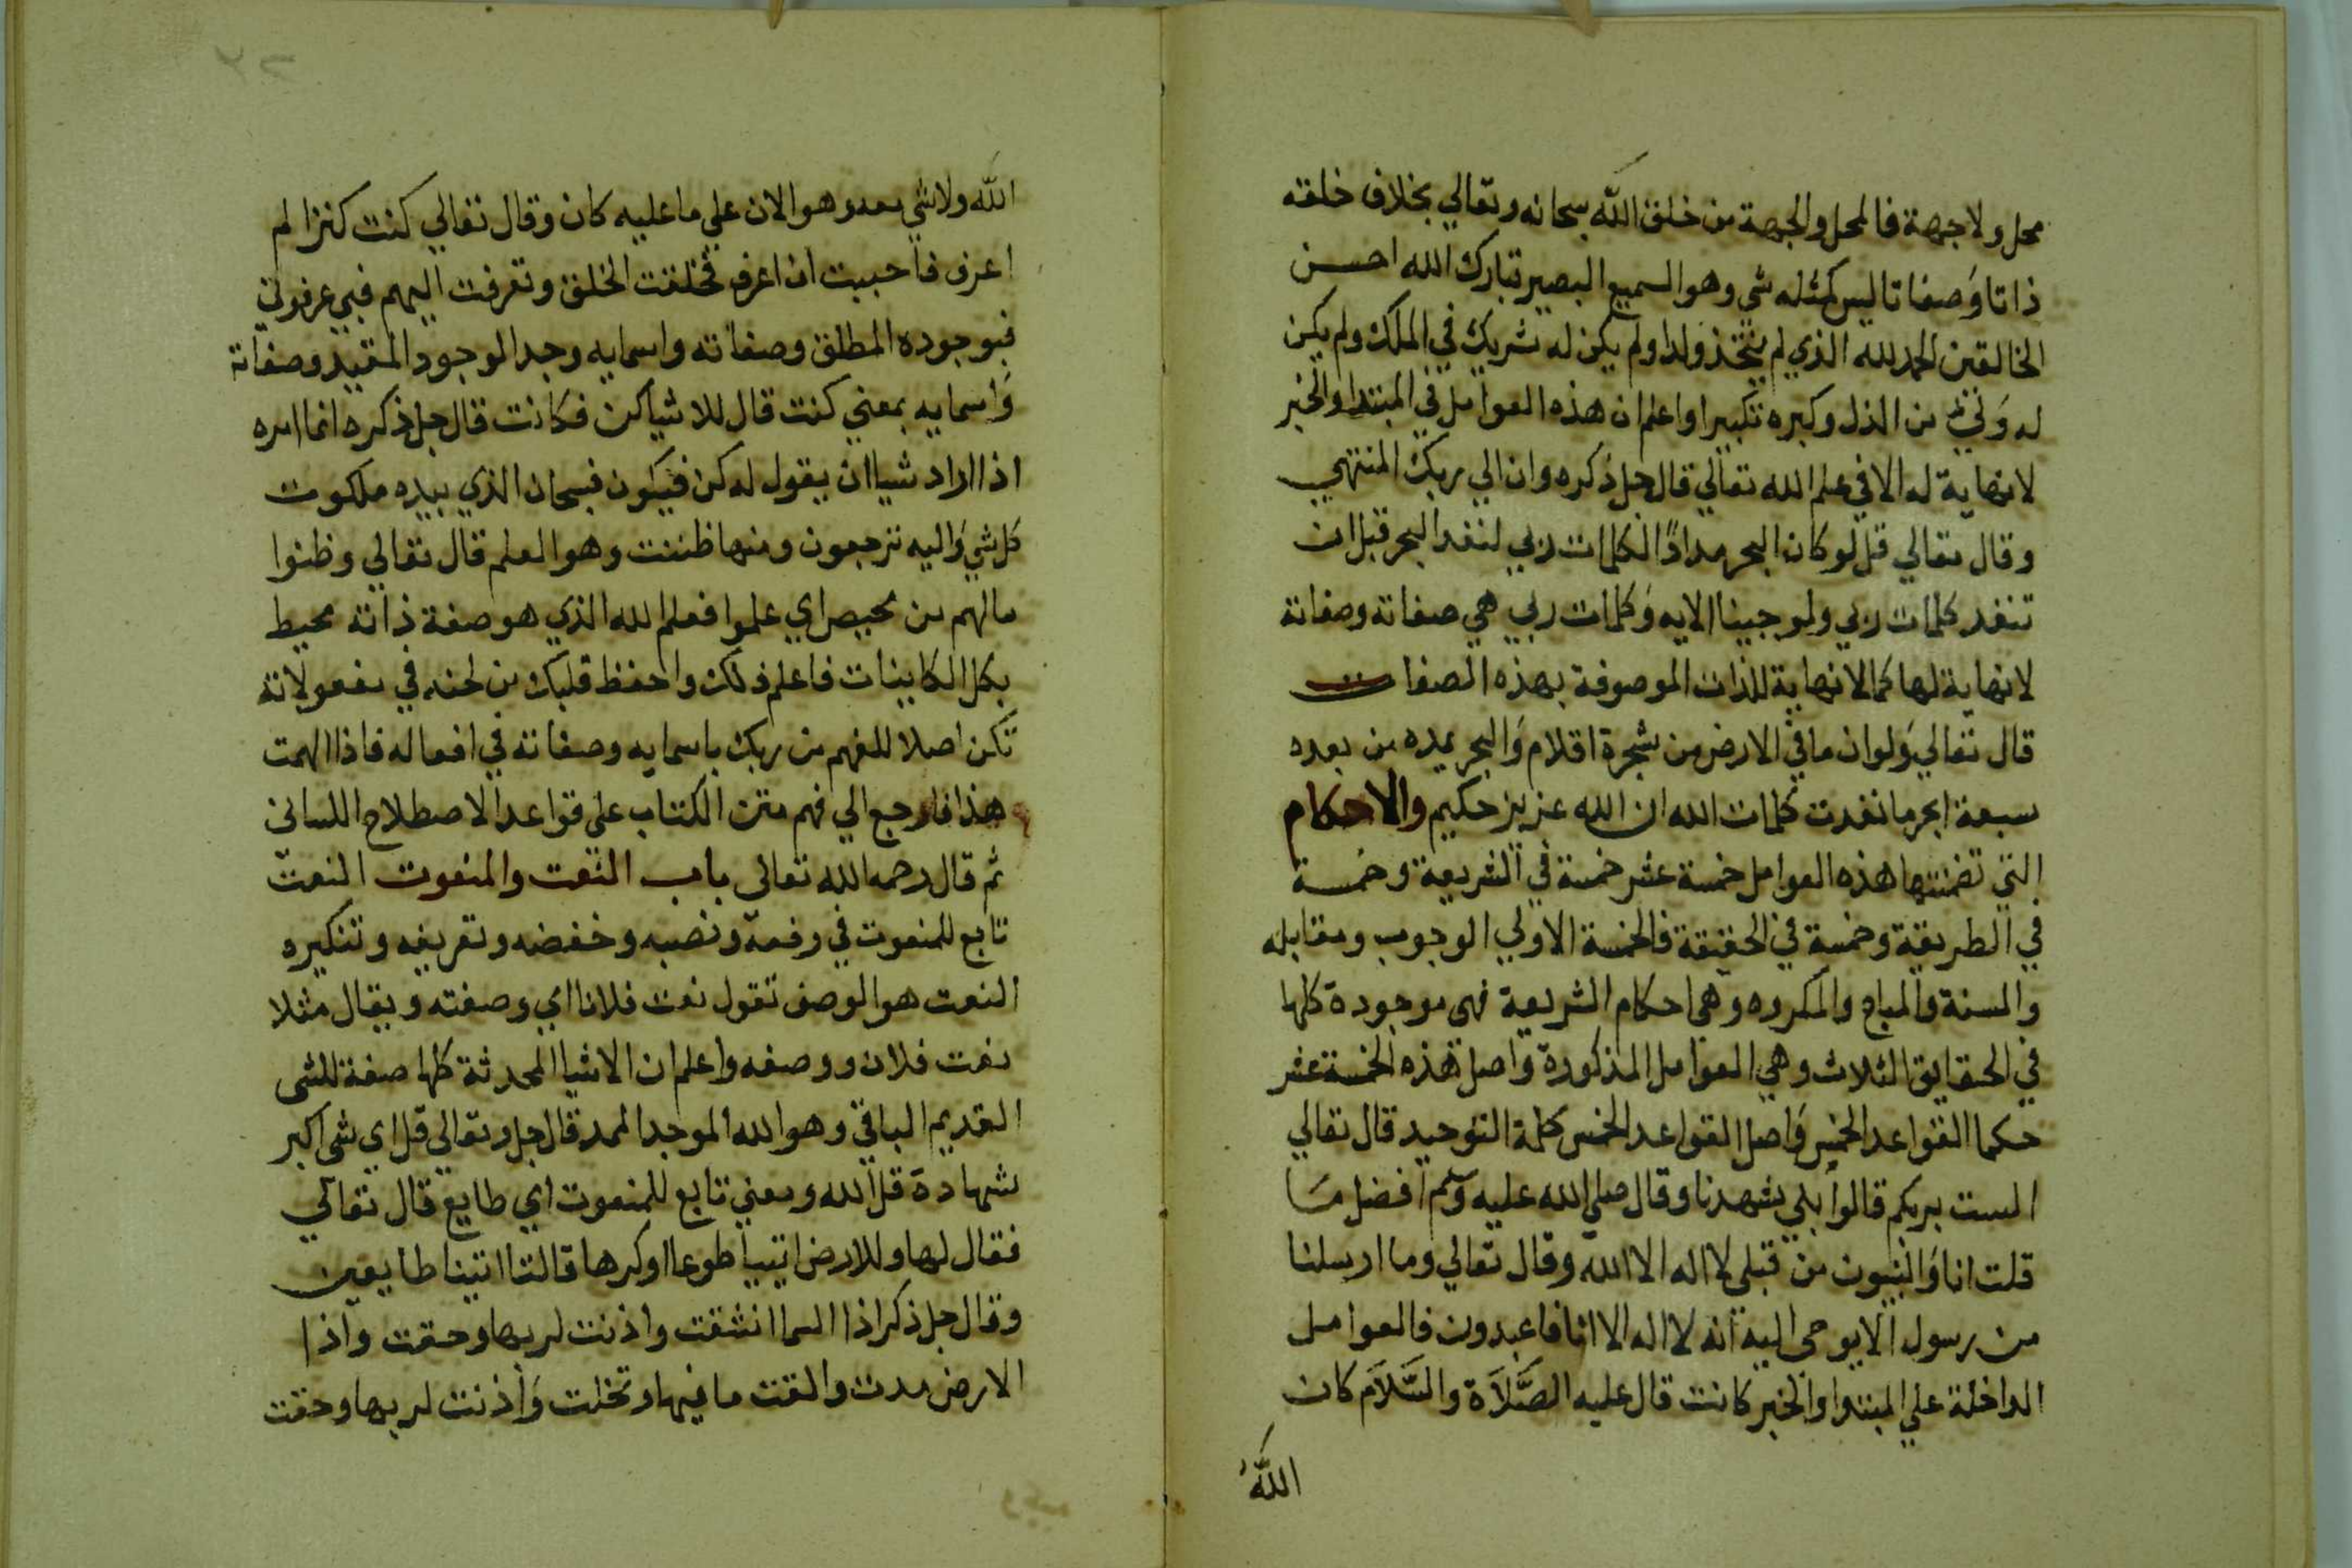 محل ولا جهة فالمحل والجهة من خلق الله سبحانه وتعالي بخلاف خلقه
ذاتا وصفاتا ليس كمثله شي وهو السميع البصير تبارك الله احسن
الخالقين الحمد لله الذي لم يتخذ ولدا ولم يكن له شريك في الملك ولم يكن
له ولي من الذل وكبره تكبيرا واعلم ان هذه العوامل في المبتدا والخبر
لا نهاية له الا في علم الله تعالي قال جل ذكره وان الي ربك المنتهي
وقال تعالي قل لو كان البحر مدادًا لكلمات ربي لنفد البحر قبل ان
تنفد كلمات ربي ولو جينا الايه وكلمات ربي هي صفاته وصفاته
لا نهاية لها كما لا نهاية للذات الموصوفة بهذه الصفات
قال تعالي ولو ان ما في الارض من شجرة اقلام والبحر يمده من بعده
سبعة ابحر ما نفدت كلمات الله ان الله عزيز حكيم والاحكام
التي تضمنتها هذه العوامل خمسة عشر خمسة في الشريعة وخمسة
في الطريقة وخمسة في الحقيقة فالخمسة الاولي الوجوب ومقابله
والسنة والمباح والمكروه وهي احكام الشريعة فهي موجودة كلها
في الحقايق الثلاث وهي العوامل المذكورة واصل هذه الخمسة عشر
حكما القواعد الخمس واصل القواعد الخمس كلمة التوحيد قال تعالي
الست بربكم قالوا بلي شهدنا وقال صلي الله عليه وسلم افضل ما
قلت انا والنبيون من قبلي لا اله الا الله وقال تعالي وما ارسلنا
من رسول الا يوحي اليه انه لا اله الا انا فاعبدون فالعوامل
الداخلة علي المبتدا والخبر كانت قال عليه الصَّلَاة والسَّلَام كان
الله
الله ولا شي معه وهو الان علي ما عليه كان وقال تعالي كنت كنزا لم
اعرف فاحببت ان اعرف فخلقت الخلق وتعرفت اليهم فبي عرفوني
فبوجوده المطلق وصفاته واسمايه وجد الوجود المقيد وصفاته
واسمايه بمعني كنت قال للاشيا كن فكانت قال جل ذكره انما امره
اذا اراد شيا ان يقول له كن فيكون فسبحان الذي بيده ملكوت
كل شي واليه ترجعون ومنها ظننت وهو العلم قال تعالي وظنوا
ما لهم من محيص اي علموا فعلم الله الذي هو صفة ذاته محيط
بكل الكاينات فاعلم ذلك واحفظ قلبك من لحنه في مفعولاته
تكن اصلا للفهم من ربك باسمايه وصفاته في افعاله فاذا الهمت
هذا فارجع الي فهم متن الكتاب علي قواعد الاصطلاح اللساني
ثم قال رحمه الله تعالي باب النعت والمنعوت النعت
تابع للمنعوت في رفعه ونصبه وخفضه وتعريفه وتنكيره
النعت هو الوصف تقول نعت فلانا اي وصفته ويقال مثلا
نعت فلان ووصفه واعلم ان الاشيا المحدثة كلها صفة للشي
القديم الباقي وهو الله الموجد الممد قال جل وتعالي قل اي شي اكبر
شهادة قل الله ومعني تابع للمنعوت اي طايع قال تعالي
فقال لها وللارض ايتيا طوعا او كرها قالتا اتينا طايعين
وقال جل ذكر اذا السما انشقت واذنت لربها وحقت واذا
الارض مدت والقت ما فيها وتخلت واذنت لربها وحقت